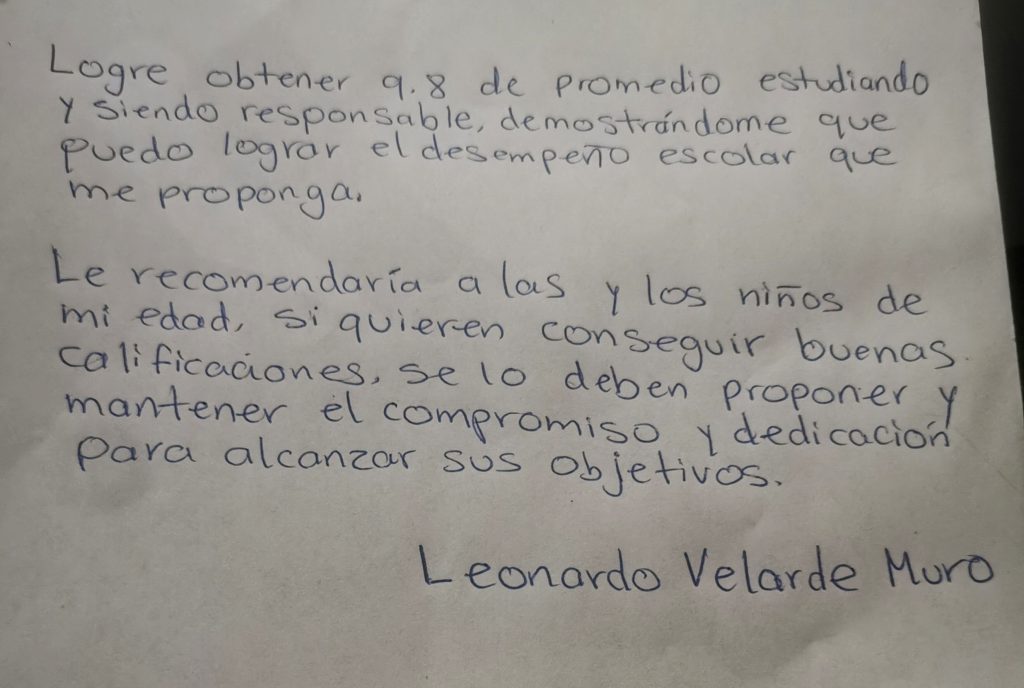 Logre obtener 9.8 de promedio estudiando
y siendo responsable, demostrándome que
puedo lograr el desempeño escolar que
me proponga.
Le recomendaría a las y los niños de
mi edad, si quieren conseguir buenas
calificaciones, se lo deben proponer y
mantener el compromiso y dedicación
para alcanzar sus objetivos.
Leonardo Velarde Muro